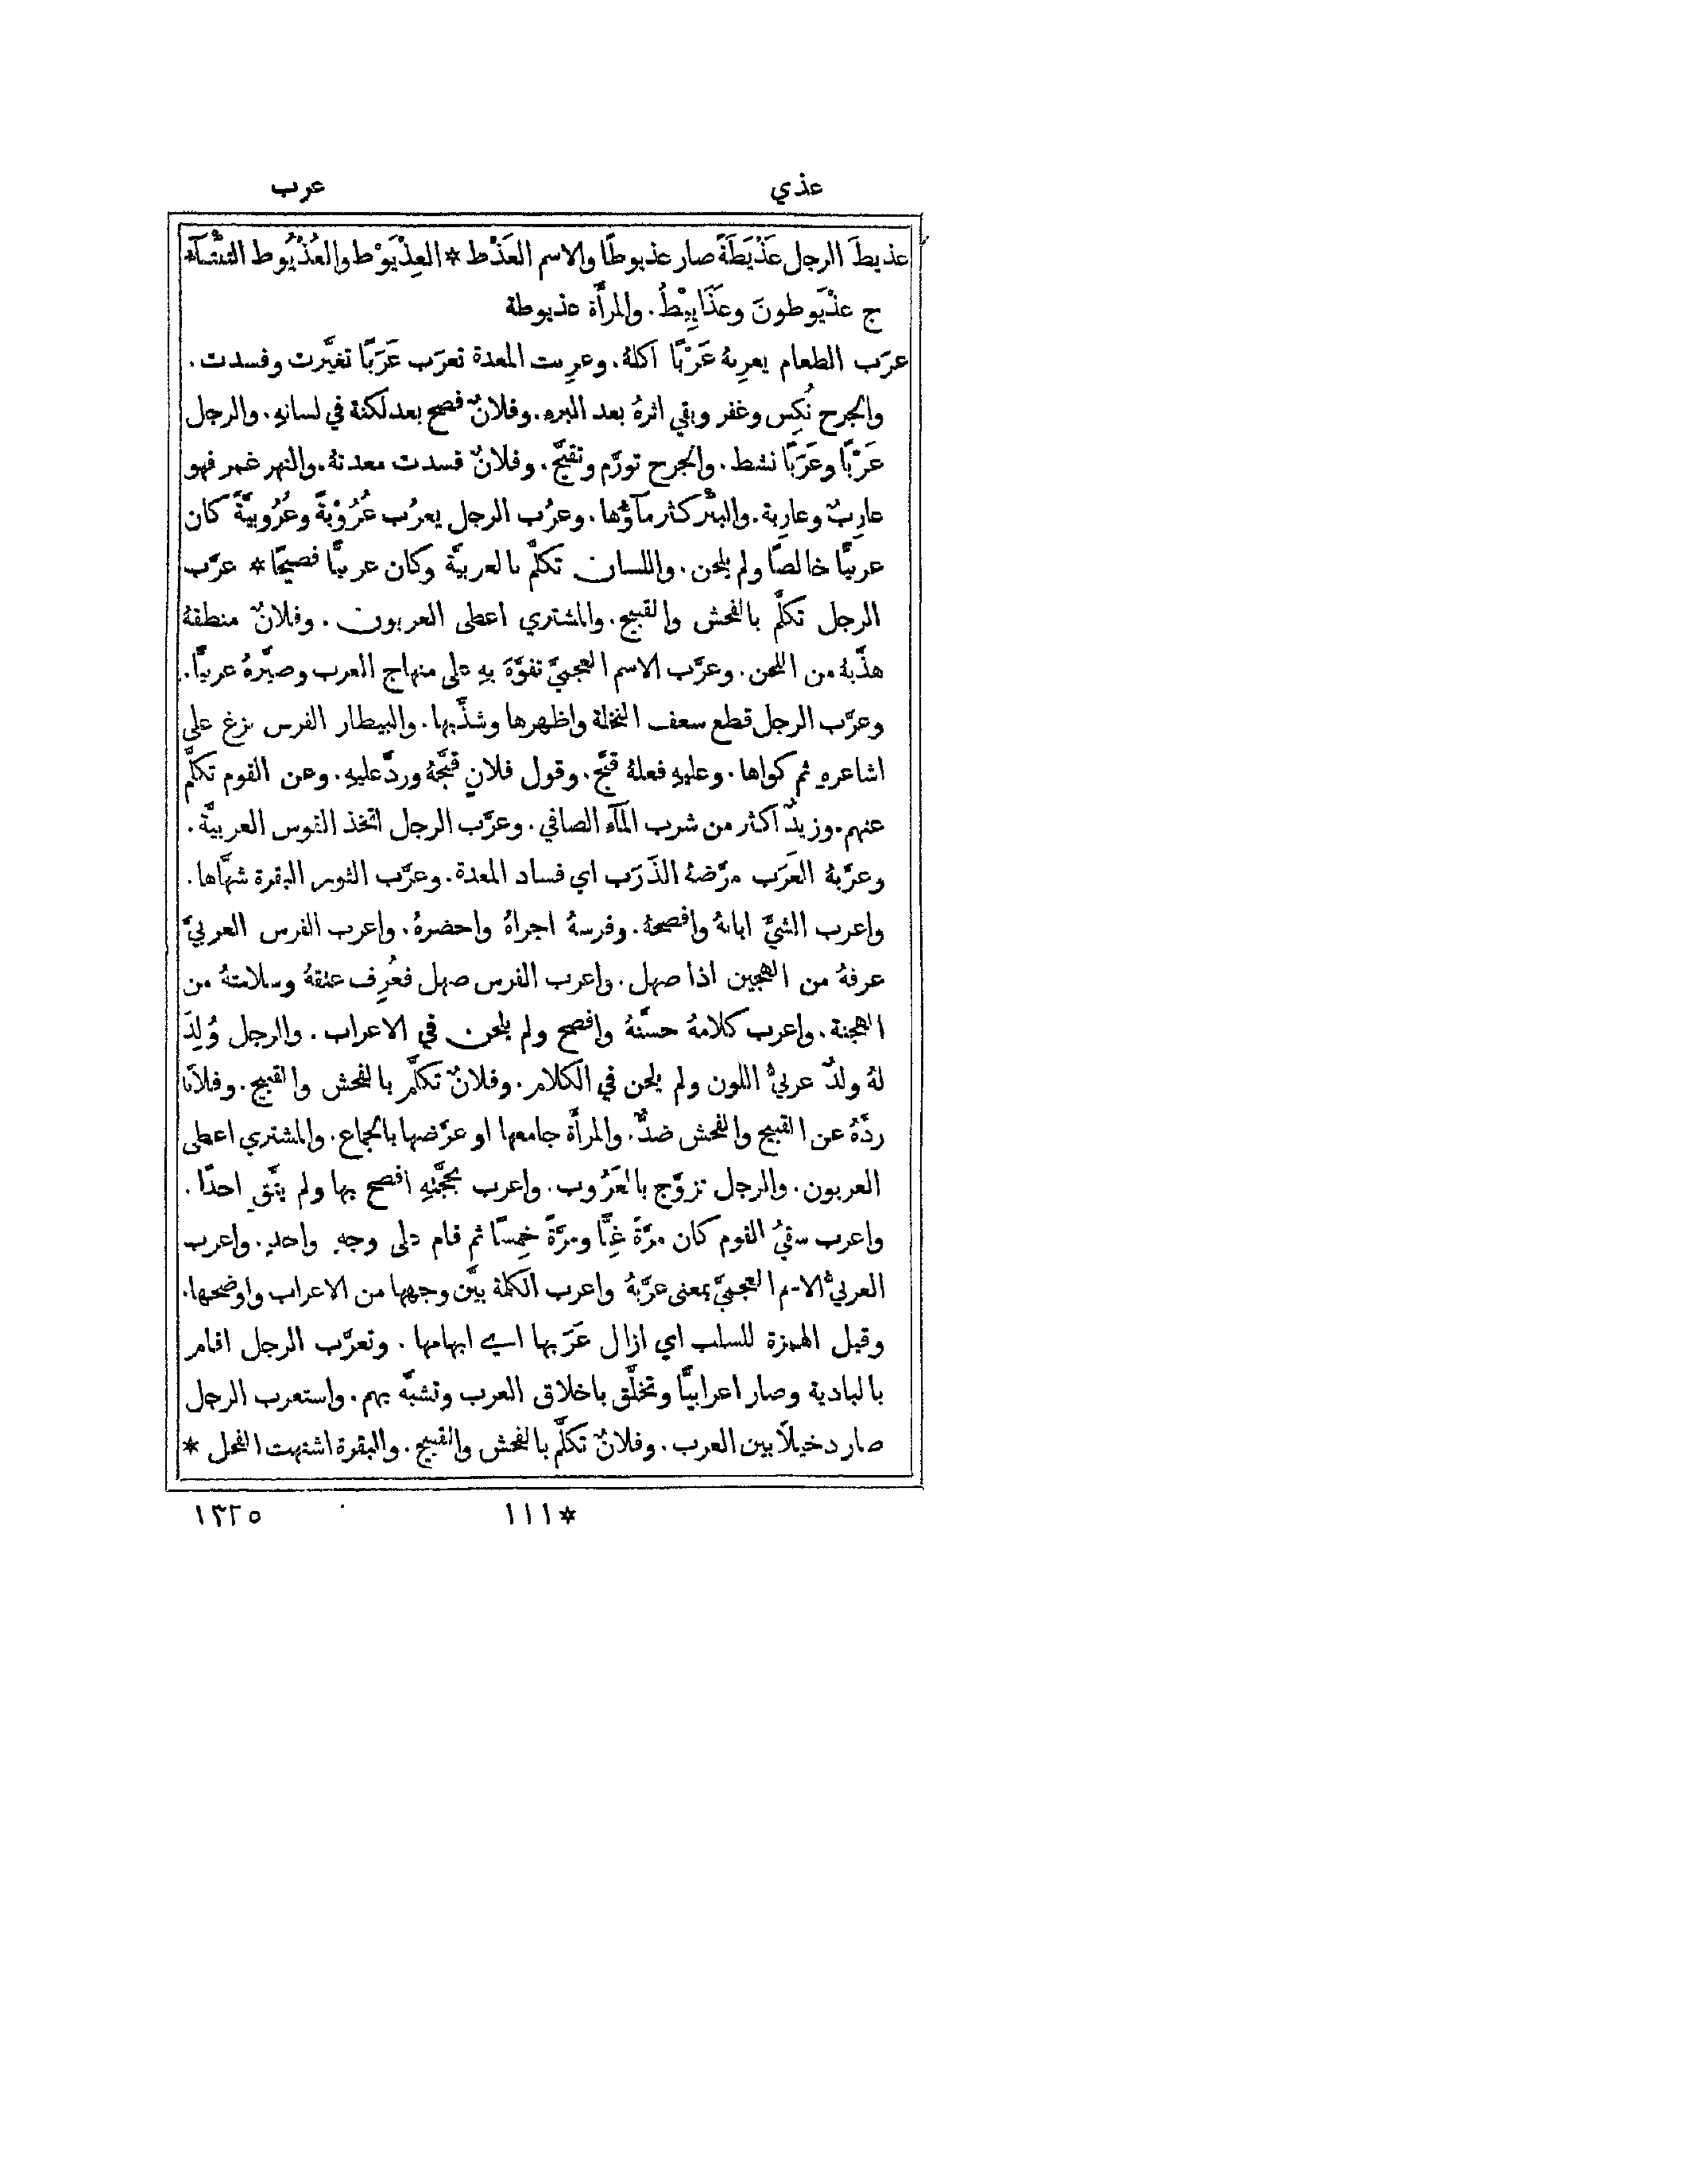 عذي
عرب
عذيطَ الرجل عَذْيَطَةً صار عذيوطًا والاسم العَذْط * العِذْيَوْط والعُذْيُوط التِّئْتَآءُ
ج عِذْيَوطونَ وعَذَايِيْطُ. والمرأَة عذيوطة
عرَب الطعام يعرِبهُ عَرْبًا أكلهُ. وعرِبت المعدة تعرَب عَرَبًا تغيَّرت وفسدت.
والجرح نُكِس وغفر وبقي اثرهُ بعد البرء. وفلانٌ فصح بعد لكنة في لسانهِ. والرجل
عَرْبًا وعَرَبًا نشط. والجرح تورَّم وتقيَّح. وفلانٌ فسدت معدتهُ. والنهر غمر فهو
عارِبٌ وعارِبة. والبئر كثر مآؤُها. وعرُب الرجل يعرُب عُرُوْبةً وعُرُوبيَّةً كان
عربيًّا خالصًا ولم يلحن. واللسان تكلَّم بالعربيَّة وكان عربيًّا فصيحًا * عرَّب
الرجل تكلَّم بالفحش والقبيح. والمشتري اعطى العربون. وفلانٌ منطقهُ
هذَّبهُ من اللحن. وعرَّب الاسم العجميَّ تفوَّهَ بهِ على منهاج العرب وصيَّرهُ عربيًّا.
وعرَّب الرجل قطع سعف النخلة واظهرها وشذَّبها. والبيطار الفرس بزغ على
اشاعرهِ ثم كواها. وعليهِ فعلهُ قبَّح. وقول فلانٍ قبَّحهُ وردَّ عليهِ. وعن القوم تكلَّم
عنهم. وزيدٌ أكثر من شرب المآء الصافي. وعرَّب الرجل اتخذ القوس العربيَّة.
وعرَّبهُ العَرَب مرَّضهُ الذَرَب اي فساد المعدة. وعرَّب الثور البقرة شهَّاها.
واعرب الشيَّ ابانهُ وافصحهُ. وفرسهُ اجراهُ واحضرهُ. واعرب الفرس العربيَّ
عرفهُ من الهجين اذا صهل. واعرب الفرس صهل فعُرِف عتقهُ وسلامتهُ من
الهجنة. واعرب كلامهُ حسَّنهُ وافصح ولم يلحن في الاعراب. والرجل وُلِدَ
لهُ ولدٌ عربيُّ اللون ولم يلحن في الكلام. وفلانٌ تكلَّم بالفحش والقبيح. وفلانًا
ردَّهُ عن القبيح والفحش ضدٌّ. والمرأَة جامعها او عرَّضها بالجماع. والمشتري اعطى
العربون. والرجل تزوَّج بالعَرُوب. واعرب بحجَّتهِ افصح بها ولم يتَّقِ احدًا.
واعرب سقيُ القوم كان مرَّةً غِبًّا ومرَّةً خِمسًا ثم قام على وجهٍ واحدٍ. واعرب
العربيُّ الاسم العجميَّ بمعنى عرَّبهُ واعرب الكلمة بيَّن وجهها من الاعراب واوضحها.
وقيل الهمزة للسلب اي ازال عَرَبها اي ابهامها. وتعرَّب الرجل اقام
بالبادية وصار اعرابيًّا وتخلَّق باخلاق العرب وتشبَّه بهم. واستعرب الرجل
صار دخيلًا بين العرب. وفلانٌ تكلَّم بالفحش والقبيح. والبقرة اشتهت الفحل *
*١١١
١٣٢٥